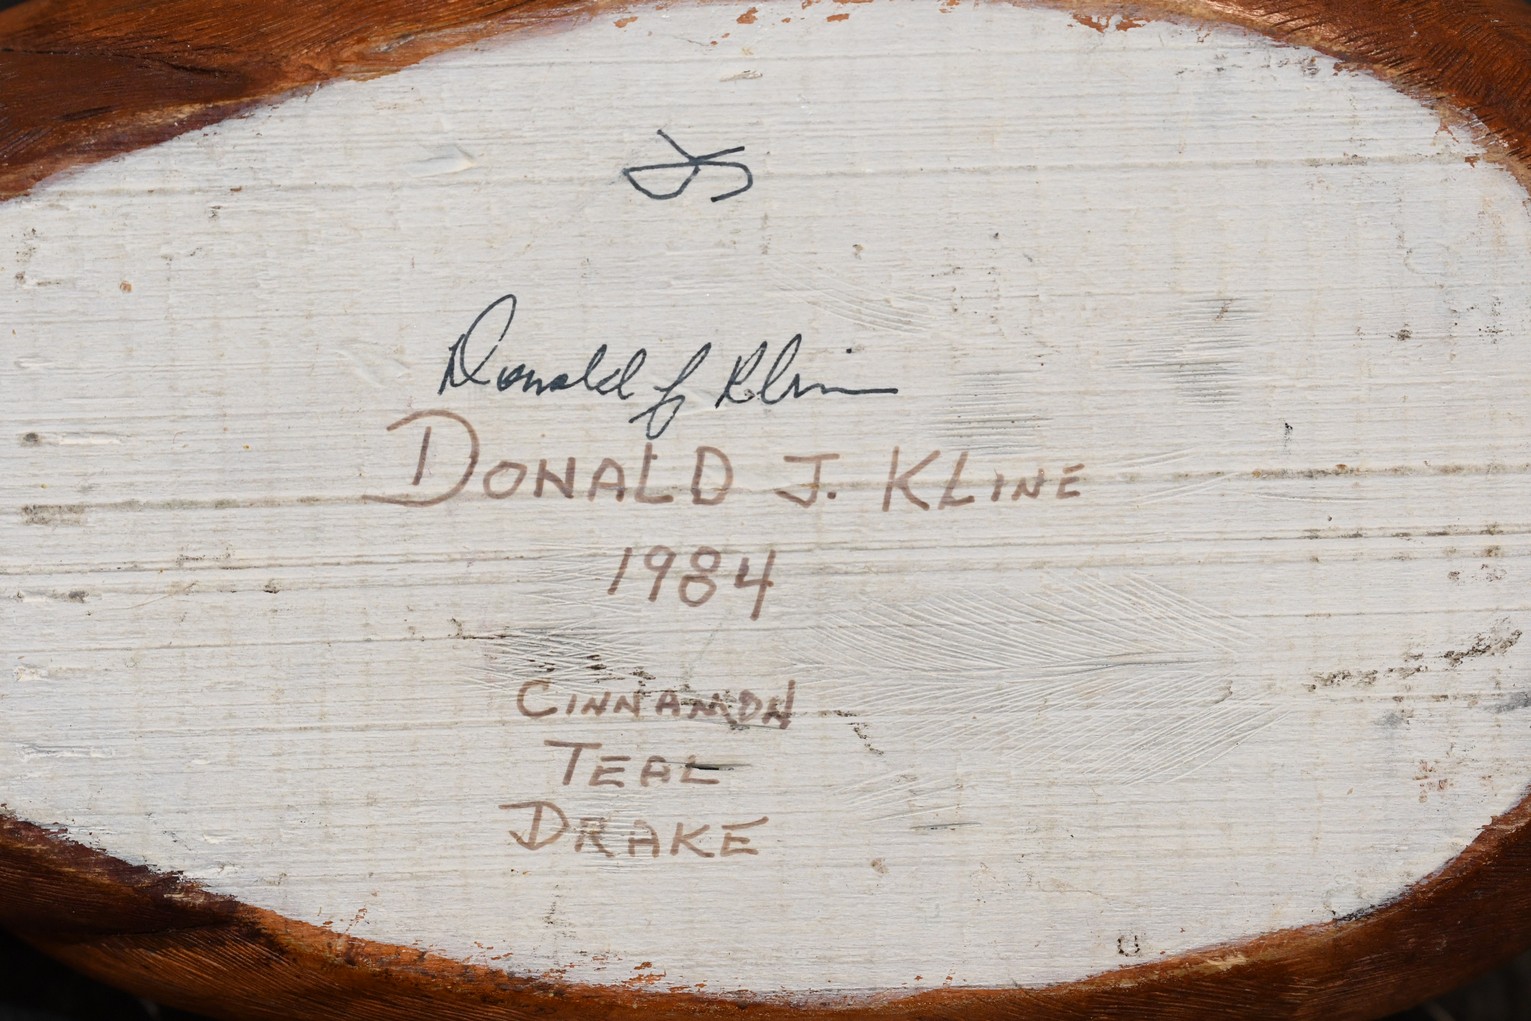 Donald J Kline
DONALD J. KLINE
1984
CINNAMON
TEAL
DRAKE